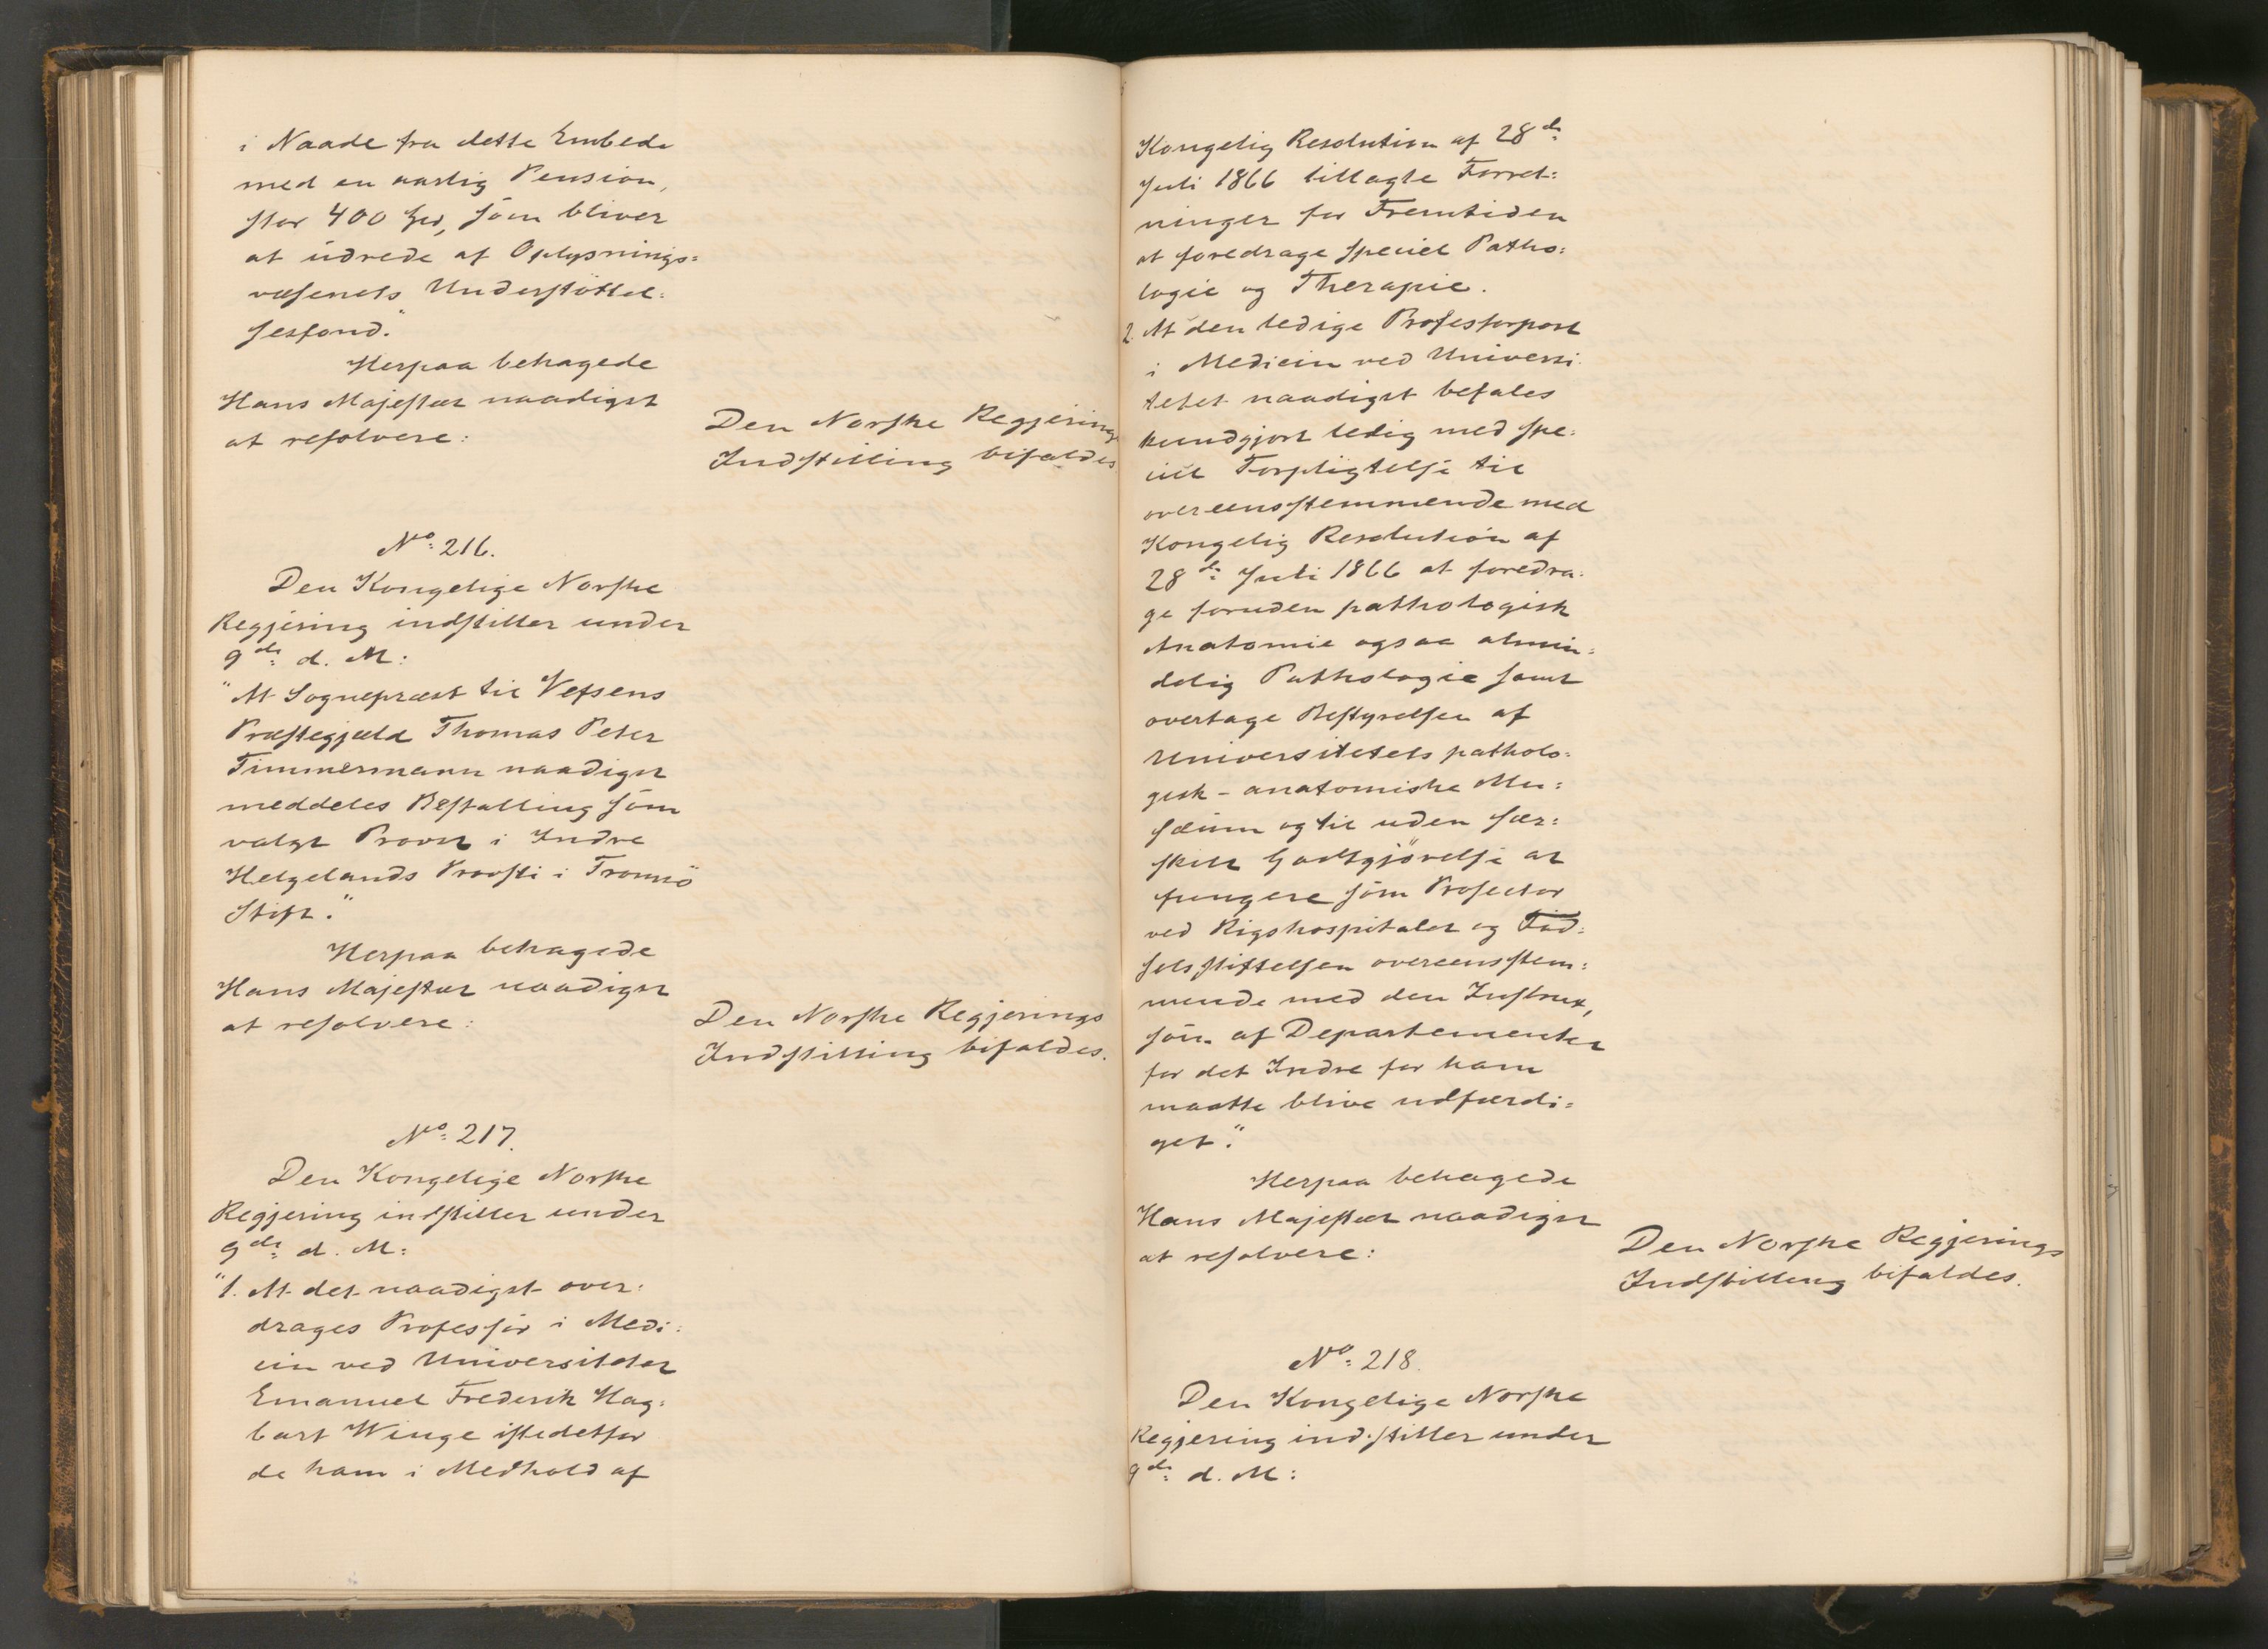 i Naade fra dette Embede
med en aarlig Pension,
stor 400 Spd, som bliver
at udrede af Oplysnings=
væsenets Understöttel=
sesfond."
Herpaa behagede
Hans Majestæt naadigst
at resolvere:
Den Norske Regjerings
Indstilling bifaldes
No: 216.
Den Kongelige Norske
Regjering indstiller under
9de: d. M:
"At Sognepræst til Vefsens
Præstegjæld Thomas Peter
Timmermann naadigst
meddeles Bestalling som
valgt Provst i Indre
Helgelands Provsti i Tromsö
Stift."
Herpaa behagede
Hans Majestæt naadigst
at resolvere:
Den Norske Regjerings
Indstilling bifaldes.
No: 217.
Den Kongelige Norske
Regjering indstiller under
9de: d. M:
"1. At det naadigst over=
drages Professor i Medi=
cin ved Universitetet
Emanuel Frederik Hag=
bart Winge istedetfor
de ham i Medhold af
Kongelig Resolution af 28de:
Juli 1866 tillagte Forret=
ninger for Fremtiden
at foredrage speciel Patho=
logie og Therapie.
2. At den ledige Professorpost
i Medicin ved Universi=
tetet naadigst befales
kundgjort ledig med spe=
ciel Forpligtelse til
overeensstemmende med
Kongelig Resolution af
28de: Juli 1866 at foredra=
ge foruden pathologisk
Anatomie ogsaa almin=
delig Pathologie samt
overtage Bestyrelsen af
Universitetets patholo=
gisk-anatomiske Mu=
sæum og til uden sær=
skilt Godtgjörelse at
fungere som Prosector
ved Rigshospitalet og Föd=
selsstiftelsen overeensstem=
mende med den Instrux,
som af Departementet
for det Indre for ham
maatte blive udfærdi=
get."
Herpaa behagede
Hans Majestæt naadigst
at resolvere:
Den Norske Regjerings
Indstilling bifaldes.
No: 218.
Den Kongelige Norske
Regjering indstiller under
9de: d. M: